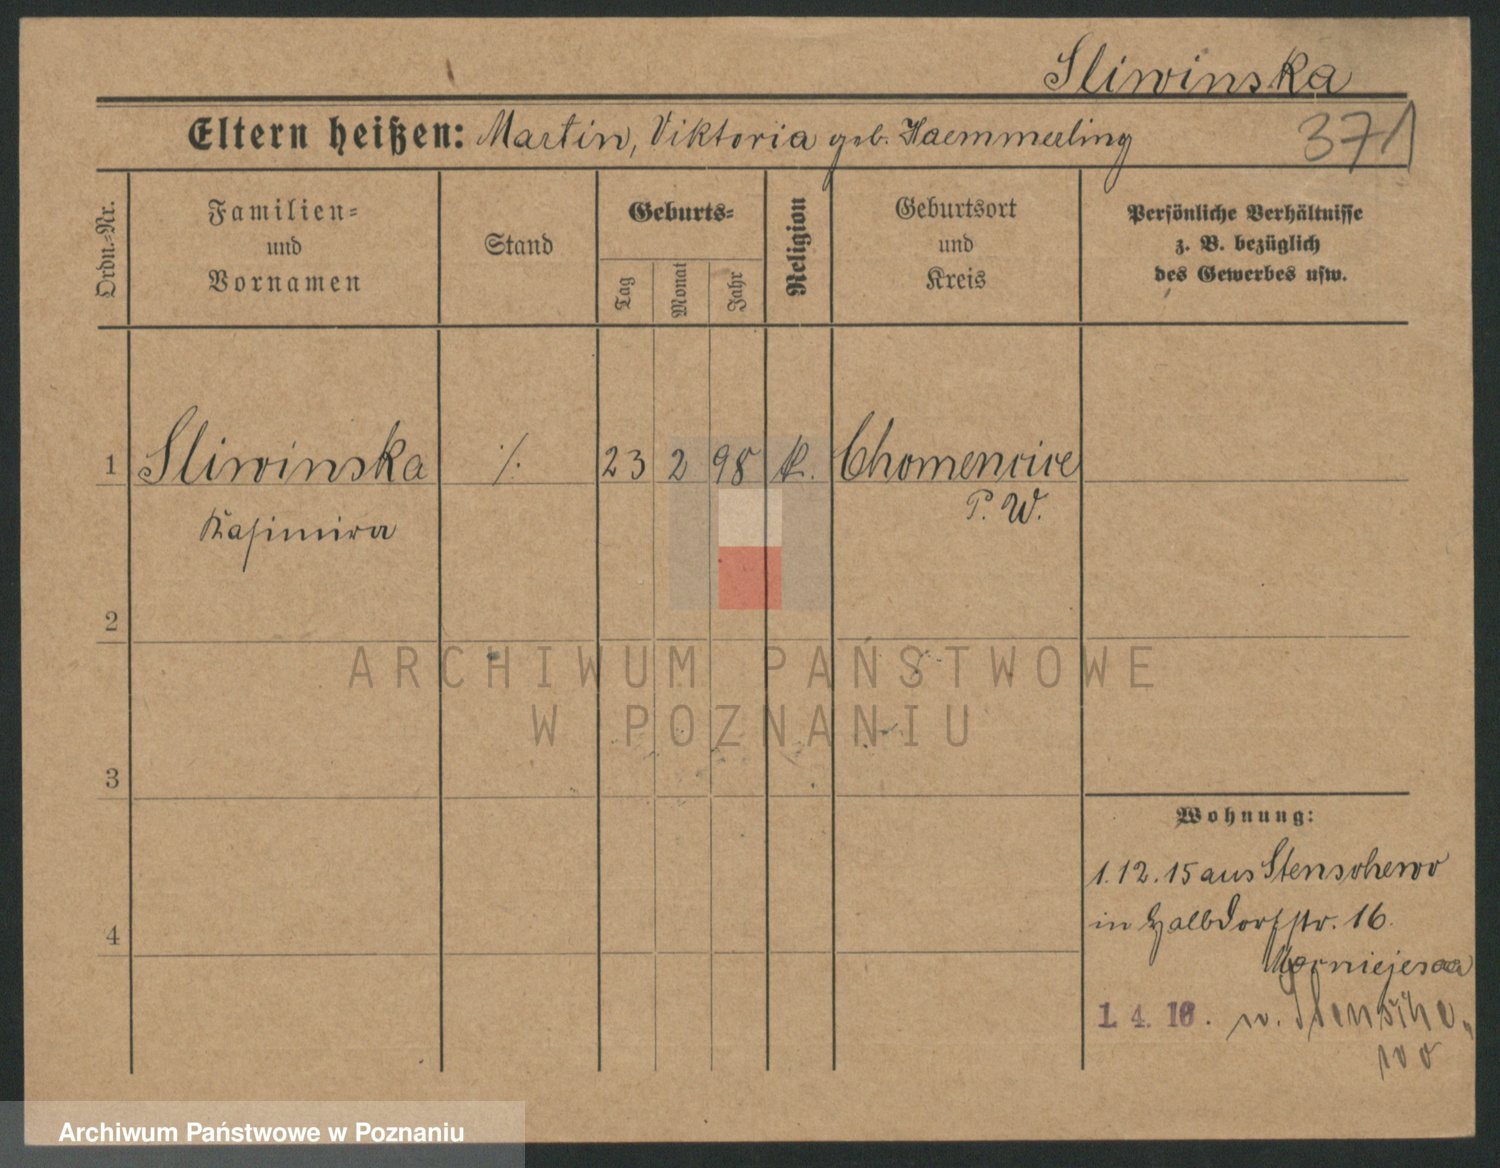 Sliwinska
Eltern heißen: Martin, Viktoria geb. Haemmerling
371
Ordn.-Nr.
Familien-
und
Vornamen
Stand
Geburts-
Tag
Monat
Jahr
Religion
Geburtsort
und
Kreis
Persönliche Verhältnisse
z. B. bezüglich
des Gewerbes usw.
1 Sliwinska ·/. 23 2 98 K. Chomencice
Kasimira P. W.
2
3
4
Wohnung:
1.12.15 aus Stenschewo
in Halbdorfstr. 16.
1. 4. 16. n. Stensche-
wo
ARCHIWUM PAŃSTWOWE
W POZNANIU
Archiwum Państwowe w Poznaniu